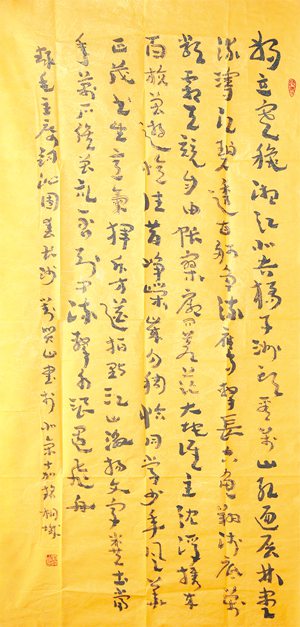 独立寒秋湘江北去橘子洲头看万山红遍层林尽
染漫江碧透百舸争流鹰击长空鱼翔浅底万
类霜天竞自由怅寥廓问苍茫大地谁主沉浮携来
百侣曾游忆往昔峥嵘岁月稠恰同学少年风华
正茂书生意气挥斥方遒指点江山激扬文字粪土当
年万户侯曾记否到中流击水浪遏飞舟
录毛主席词沁园春长沙山书于北京